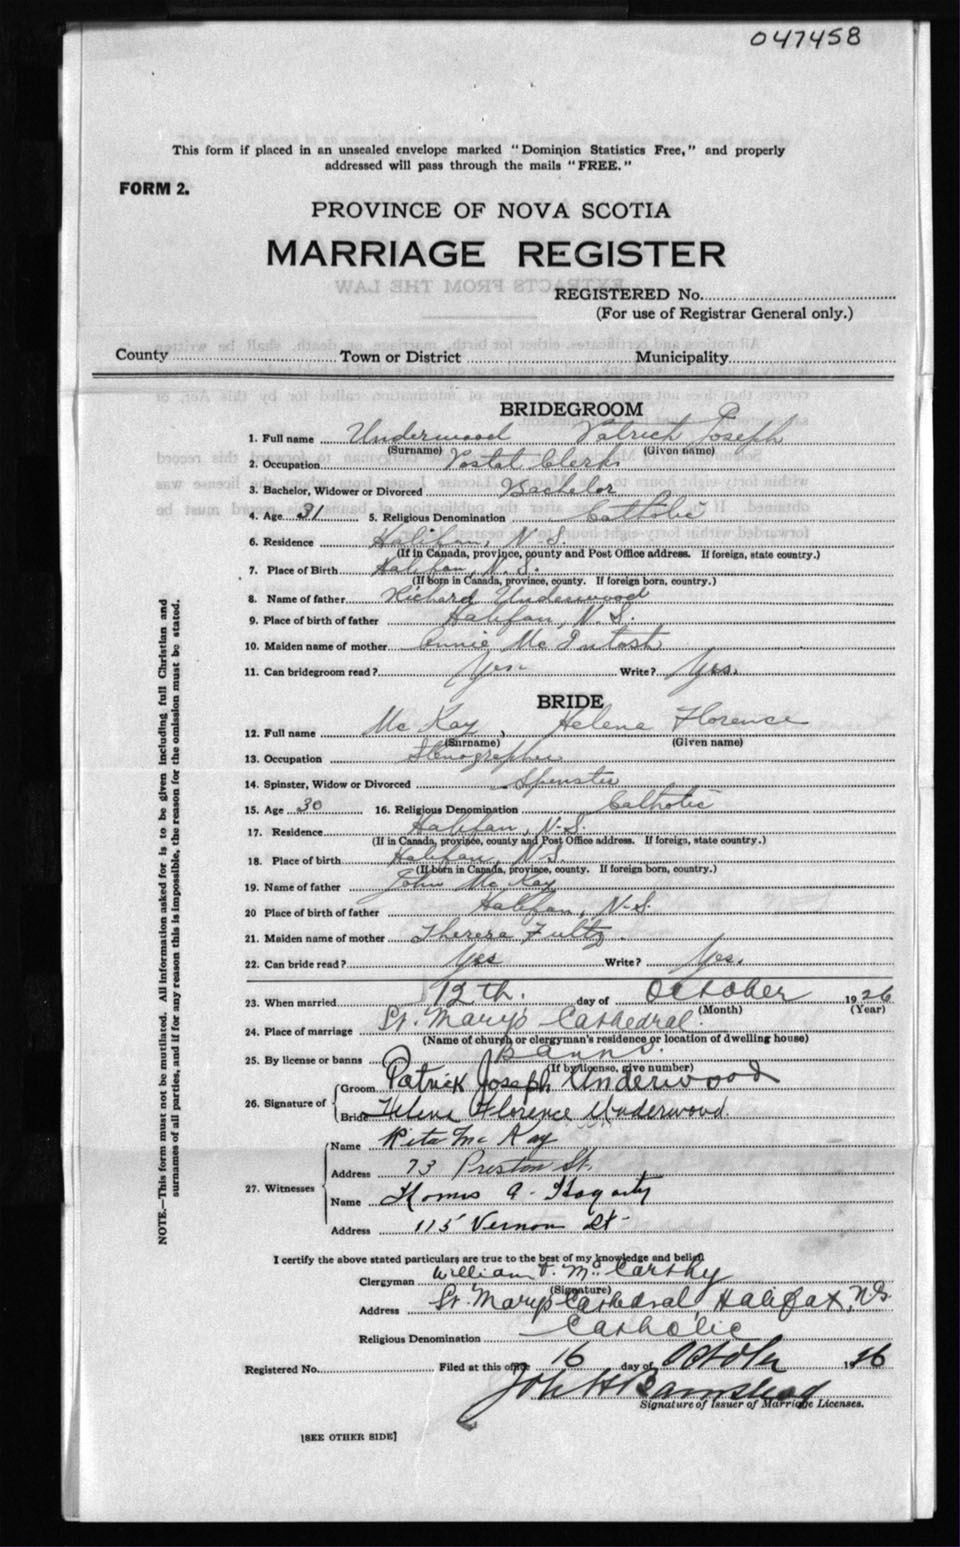 047458
This form if placed in an unsealed envelope marked "Dominion Statistics Free," and properly
addressed will pass through the mails "FREE."
FORM 2.
PROVINCE OF NOVA SCOTIA
MARRIAGE REGISTER
REGISTERED No.
(For use of Registrar General only.)
County Town or District Municipality
BRIDEGROOM
1. Full name Underwood Patrick Joseph
(Surname) (Given name)
2. Occupation Postal Clerk
3. Bachelor, Widower or Divorced Bachelor
4. Age 31 5. Religious Denomination Catholic
6. Residence Halifax, N.S.
(If in Canada, province, county and Post Office address. If foreign, state country.)
7. Place of Birth Halifax, N.S.
(If born in Canada, province, county. If foreign born, country.)
8. Name of father Richard Underwood
9. Place of birth of father Halifax, N.S.
10. Maiden name of mother Annie McIntosh
11. Can bridegroom read? Yes Write? Yes.
BRIDE
12. Full name McKay, Helena Florence
(Surname) (Given name)
13. Occupation Stenographer
14. Spinster, Widow or Divorced Spinster
15. Age 30 16. Religious Denomination Catholic
17. Residence Halifax, N.S.
(If in Canada, province, county and Post Office address. If foreign, state country.)
18. Place of birth Halifax, N.S.
(If born in Canada, province, county. If foreign born, country.)
19. Name of father John McKay
20 Place of birth of father Halifax, N.S.
21. Maiden name of mother Theresa Fultz
22. Can bride read? Yes Write? Yes.
23. When married 12th. day of October 1926
(Month) (Year)
24. Place of marriage St. Mary's Cathedral.
(Name of church or clergyman's residence or location of dwelling house)
25. By license or banns Banns.
(If by license, give number)
26. Signature of Groom Patrick Joseph Underwood
Bride Helena Florence Underwood.
27. Witnesses Name Rita McKay
Address 73 Preston St.
Name Thomas A. Hogarty
Address 115 Vernon St
I certify the above stated particulars are true to the best of my knowledge and belief
Clergyman William J. McCarthy
(Signature)
Address St. Mary's Cathedral, Halifax, N.S.
Religious Denomination Catholic
Registered No. Filed at this office 16 day of October 1926
John H Barnstead
Signature of Issuer of Marriage Licenses.
[SEE OTHER SIDE]
NOTE.—This form must not be mutilated. All information asked for is to be given including full Christian and
surnames of all parties, and if for any reason this is impossible, the reason for the omission must be stated.